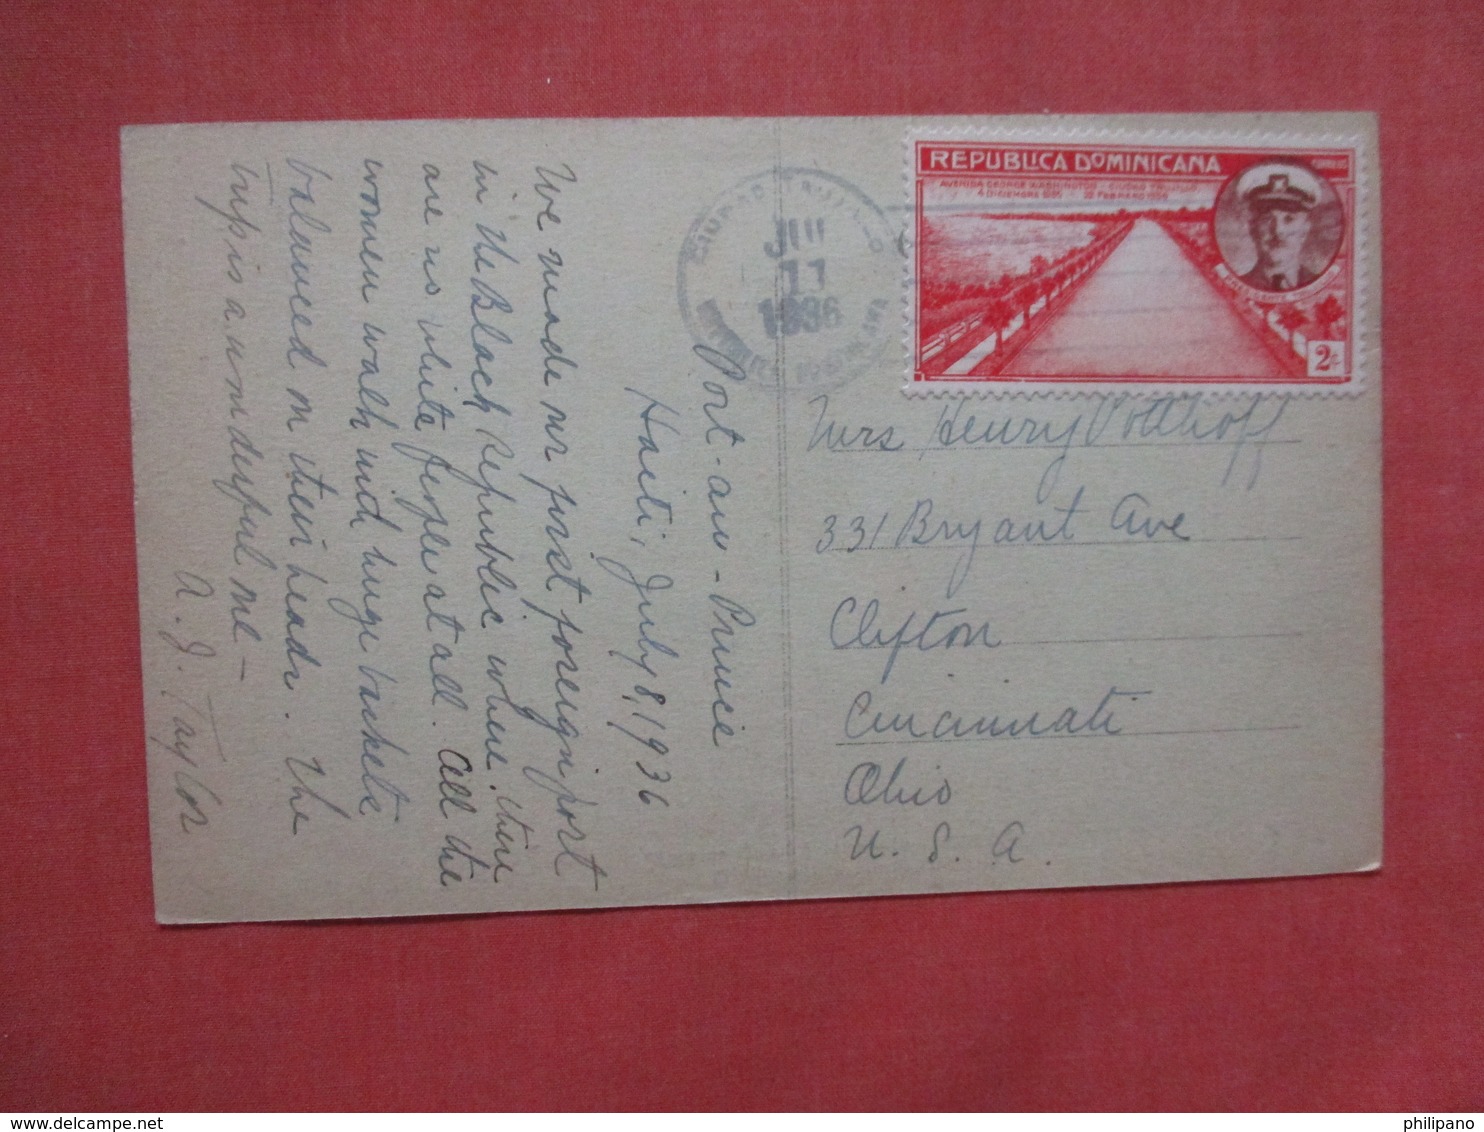 Port-au-Prince
Haiti, July 8, 1936
We made our first foreign port
in the Black republic where there
are no white people at all. All the
women walk with huge baskets
balanced on their heads. The
trip is a wonderful one –
A. J. Taylor
CIUDAD TRUJILLO
JUL
11
1936
REPUBLICA DOMINICANA
REPUBLICA DOMINICANA
CORREOS
AVENIDA GEORGE WASHINGTON - CIUDAD TRUJILLO
2¢
Mrs Henry Potthoff
331 Bryant Ave
Clifton
Cincinnati
Ohio
U. S. A.
philipano